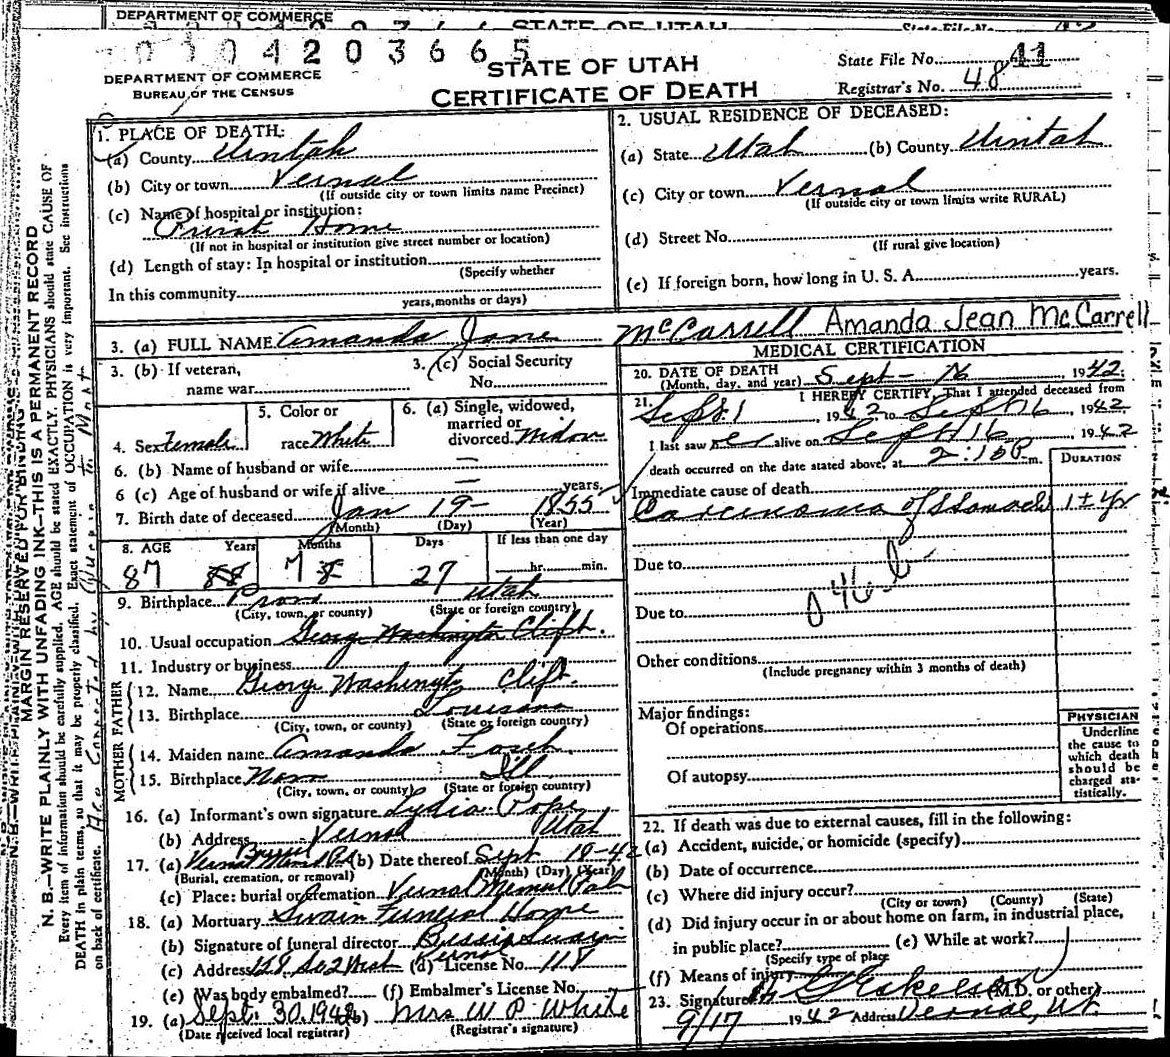 DEPARTMENT OF COMMERCE STATE OF UTAH State File No.
0 3 0 4 2 0 3 6 6 5
DEPARTMENT OF COMMERCE
BUREAU OF THE CENSUS
STATE OF UTAH
CERTIFICATE OF DEATH
State File No. 41
Registrar's No. 48
MARGIN RESERVED FOR BINDING
N. B.—WRITE PLAINLY WITH UNFADING INK—THIS IS A PERMANENT RECORD
Every item of information should be carefully supplied. AGE should be stated EXACTLY. PHYSICIANS should state CAUSE OF
DEATH in plain terms, so that it may be properly classified. Exact statement of OCCUPATION is very important. See instructions
on back of certificate. Age Corrected by
1. PLACE OF DEATH:
(a) County Uintah
(b) City or town Vernal
(If outside city or town limits name Precinct)
(c) Name of hospital or institution:
Privat Home
(If not in hospital or institution give street number or location)
(d) Length of stay: In hospital or institution
(Specify whether
In this community
years, months or days)
2. USUAL RESIDENCE OF DECEASED:
(a) State Utah (b) County Uintah
(c) City or town Vernal
(If outside city or town limits write RURAL)
(d) Street No.
(If rural give location)
(e) If foreign born, how long in U. S. A. years.
3. (a) FULL NAME Amanda Jane McCarrell Amanda Jean McCarrell
3. (b) If veteran,
name war
3. (c) Social Security
No.
4. Sex Female
5. Color or
race White
6. (a) Single, widowed,
married or
divorced Widow
6. (b) Name of husband or wife —
6 (c) Age of husband or wife if alive — years.
7. Birth date of deceased Jan 19- 1855
(Month) (Day) (Year)
8. AGE Years Months Days If less than one day
87 88 7 8 27 hr. min.
9. Birthplace Provo Utah
(City, town, or county) (State or foreign country)
10. Usual occupation George Washington Clift.
11. Industry or business
FATHER
12. Name George Washingt Clift.
13. Birthplace Louisana
(City, town, or county) (State or foreign country)
MOTHER
14. Maiden name Amanda
15. Birthplace Ill
(City, town, or county) (State or foreign country)
16. (a) Informant's own signature Lydia Pope
(b) Address Vernal Utah
17. (a) Burial Vernal (b) Date thereof Sept 18-42
(Burial, cremation, or removal) (Month) (Day) (Year)
(c) Place: burial or cremation Vernal
18. (a) Mortuary Swain Funeral Home
(b) Signature of funeral director Bessie Swain
Vernal
(c) Address 128 So 2 West (d) License No. 118
(e) Was body embalmed? (f) Embalmer's License No.
19. (a) Sept. 30, 1942 (b) Mrs W P White
(Date received local registrar) (Registrar's signature)
MEDICAL CERTIFICATION
20. DATE OF DEATH
(Month, day, and year) Sept- 16 1942.
21. I HEREBY CERTIFY, That I attended deceased from
Sept. 1, 1942 to Sept 16, 1942
I last saw her alive on Sept 16 1942
death occurred on the date stated above, at 2:15 P. m.
DURATION
Immediate cause of death
Carcinoma of Stomach 1± yr
Due to
046 b
Due to
Other conditions
(Include pregnancy within 3 months of death)
Major findings:
Of operations
Of autopsy
PHYSICIAN
Underline
the cause to
which death
should be
charged sta-
tistically.
22. If death was due to external causes, fill in the following:
(a) Accident, suicide, or homicide (specify)
(b) Date of occurrence
(c) Where did injury occur?
(City or town) (County) (State)
(d) Did injury occur in or about home on farm, in industrial place,
in public place? (e) While at work?
(Specify type of place
(f) Means of injury
23. Signature (M.D. or other)
9/17 1942 Address Vernal, Ut.